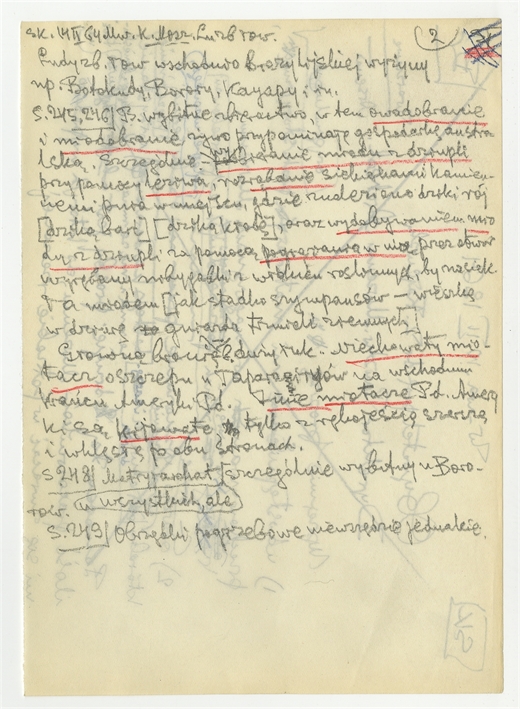 SK. 14 II 64. Mw. K. Mosz. Lud zb tow. (2)
Ludy zb. tow wschodnio brazylijskiej wyżyny
np. Botokudy, Borory, Kayapy i in.
S. 245, 246/ B. wybitne zbieractwo, w tem owadobranie
i miodobranie żywo przypominają gospodarkę austra-
lską. Szczególnie wybieranie miodu z dziupli
przy pomocy leziwa, rozrąbanie siekierkami kamien-
nemi pnia w miejscu, gdzie znaleziono dziki rój
[dzika barć] [dzika kłoda], oraz wydobywaniem mio
du z dziupli za pomocą pogrążania w nią przez otwór
wyrąbany miotełki z włókien roślinnych, by nasiąk
ła miodem [jak stadko szympansów – wieszką
w dziurę gniazda trzmieli ziemnych]
Główną bronią B. duży łuk. Niechowaty mio-
tacz oszczepu u Taparagirów na wschodnim
krańcu Ameryki Pd. Inne miotacze Pd. Amery
ki są kijowate tylko z rękojeścią szerszą
i wklęsłą po obu stronach.
S. 248/ Matryarchat szczególnie wybitny u Boro-
rów. u wszystkich, ale
S. 249/ Obrządki pogrzebowe niewszędzie jednakie.